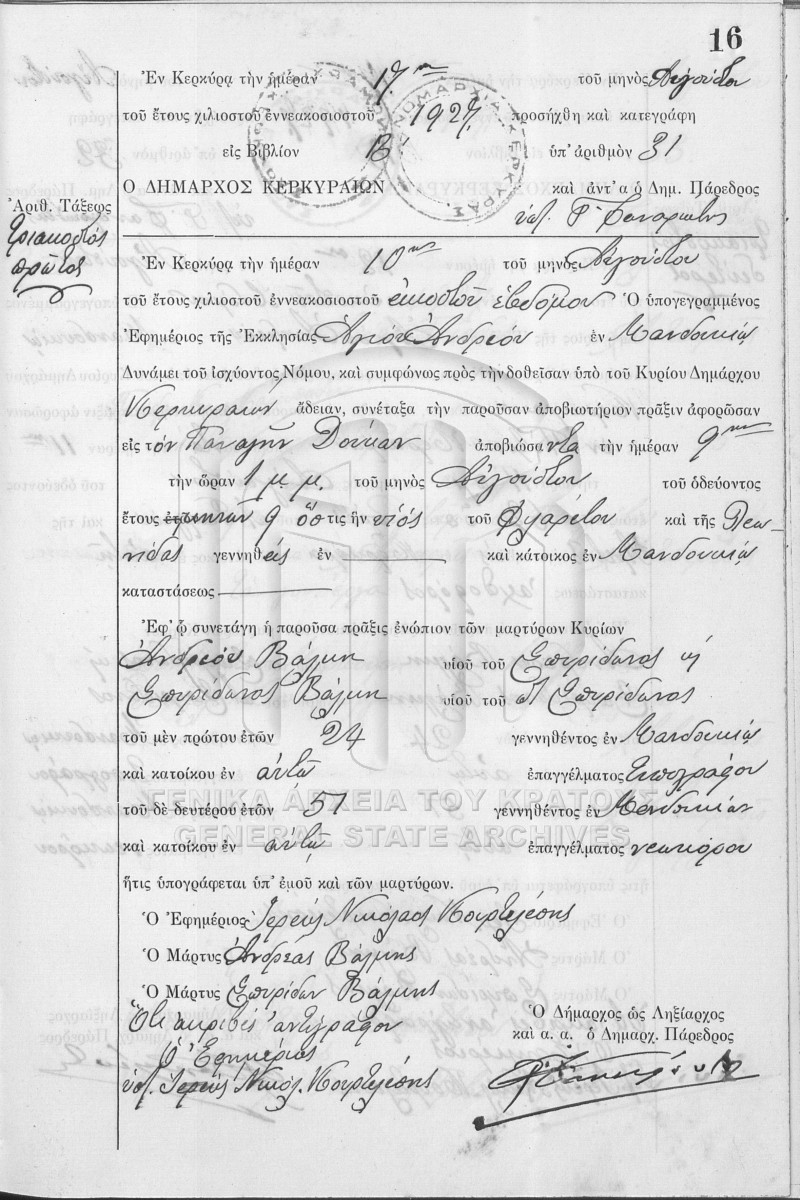 16
Ἐν Κερκύρᾳ τὴν ἡμέραν 17ην τοῦ μηνὸς Αὐγούστου
τοῦ ἔτους χιλιοστοῦ ἐννεακοσιοστοῦ 1927 προσήχθη καὶ κατεγράφη
εἰς Βιβλίον Β' ὑπ' ἀριθμὸν 31
Ο ΔΗΜΑΡΧΟΣ ΚΕΡΚΥΡΑΙΩΝ καὶ ἀντ' α ὁ Δημ. Πάρεδρος
ΝΟΜΑΡΧΙΑ ΚΕΡΚΥΡΑΣ
Ἀριθ. Τάξεως
τριακοστός
πρῶτος
Ἐν Κερκύρᾳ τὴν ἡμέραν 10ην τοῦ μηνὸς Αὐγούστου
τοῦ ἔτους χιλιοστοῦ ἐννεακοσιοστοῦ εἰκοστοῦ ἑβδόμου Ὁ ὑπογεγραμμένος
Ἐφημέριος τῆς Ἐκκλησίας Ἁγίου Ἀνδρέου ἐν Μανδουκίῳ
Δυνάμει τοῦ ἰσχύοντος Νόμου, καὶ συμφώνως πρὸς τὴν δοθεῖσαν ὑπὸ τοῦ Κυρίου Δημάρχου
Κερκυραίων ἄδειαν, συνέταξα τὴν παροῦσαν ἀποβιωτήριον πρᾶξιν ἀφορῶσαν
εἰς τὸν Παναγῆν Δούκαν ἀποβιώσαντα τὴν ἡμέραν 9ην
τὴν ὥραν 1 μ.μ. τοῦ μηνὸς Αὐγούστου τοῦ ὁδεύοντος
ἔτους ἐτῶν 9 ὅστις ἦν υἱός τοῦ Φιλαρέτου καὶ τῆς Λεω-
νίδας γεννηθείς ἐν καὶ κάτοικος ἐν Μανδουκίῳ
καταστάσεως
Ἐφ' ᾧ συνετάγη ἡ παροῦσα πρᾶξις ἐνώπιον τῶν μαρτύρων Κυρίων
Ἀνδρέου Βάλμη υἱοῦ τοῦ Σπυρίδωνος ἢ
Σπυρίδωνος Βάλμη υἱοῦ τοῦ Σπυρίδωνος
τοῦ μὲν πρώτου ἐτῶν 24 γεννηθέντος ἐν Μανδουκίῳ
καὶ κατοίκου ἐν αὐτῷ ἐπαγγέλματος τυπογράφου
τοῦ δὲ δευτέρου ἐτῶν 51 γεννηθέντος ἐν Μανδουκίῳ
καὶ κατοίκου ἐν αὐτῷ ἐπαγγέλματος νεωκόρου
ἥτις ὑπογράφεται ὑπ' ἐμοῦ καὶ τῶν μαρτύρων.
Ὁ Ἐφημέριος Ἱερεὺς Νικόλαος Κουρτελέσης
Ὁ Μάρτυς Ἀνδρέας Βάλμης
Ὁ Μάρτυς Σπυρίδων Βάλμης
Ὅτι ἀκριβές ἀντίγραφον
Ὁ Ἐφημέριος
ὑπ. Ἱερεὺς Νικόλ. Κουρτελέσης
Ὁ Δήμαρχος ὡς Ληξίαρχος
καὶ α. α. ὁ Δημαρχ. Πάρεδρος
ΓΕΝΙΚΑ ΑΡΧΕΙΑ ΤΟΥ ΚΡΑΤΟΥΣ
GENERAL STATE ARCHIVES